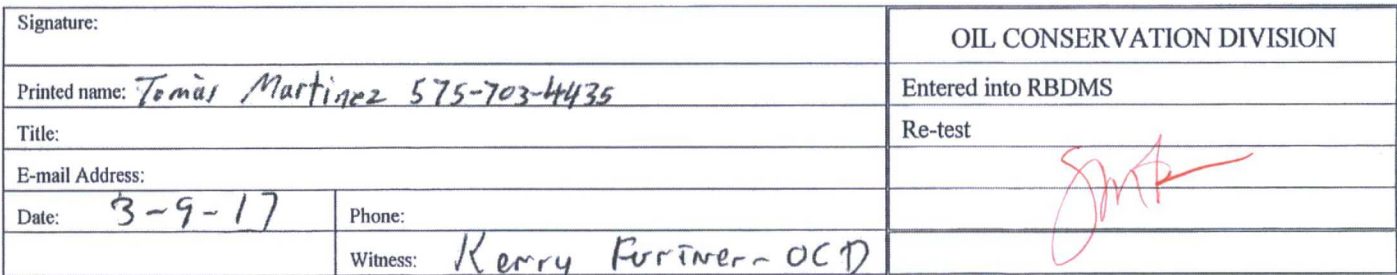 Signature:
Printed name: Tomás Martinez 575-703-4435
Title:
E-mail Address:
Date: 3-9-17
Phone:
Witness: Kerry Fortner - OCD
OIL CONSERVATION DIVISION
Entered into RBDMS
Re-test